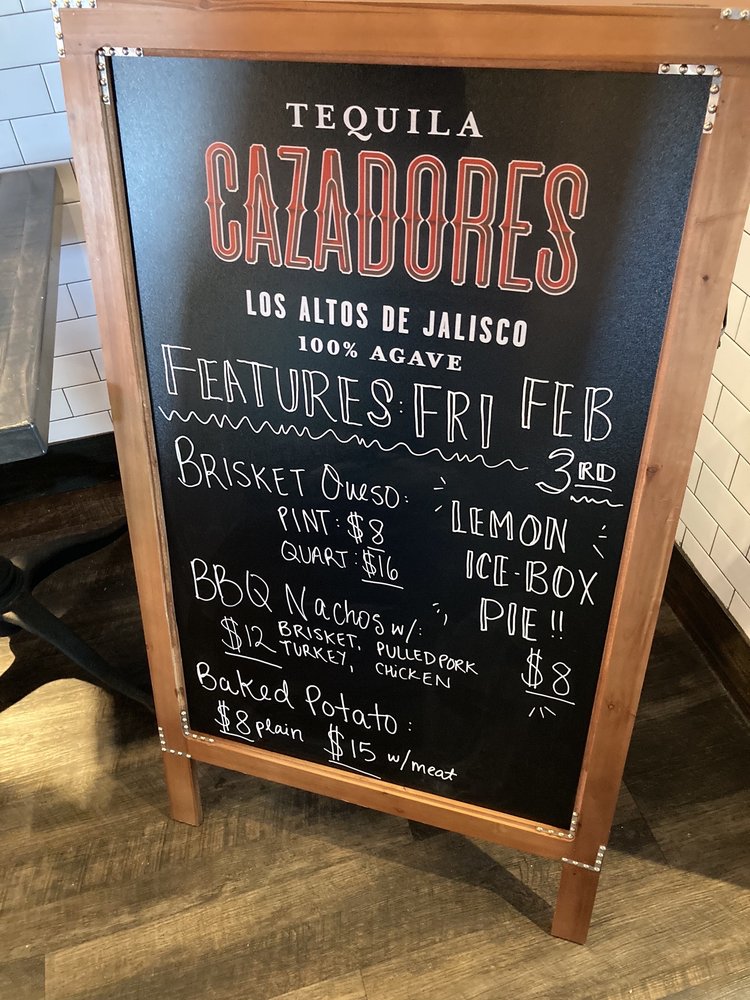 TEQUILA
CAZADORES
LOS ALTOS DE JALISCO
100% AGAVE
FEATURES: FRI FEB
3RD
BRISKET Queso:
PINT: $8
QUART: $16
BBQ Nachos w/:
$12 BRISKET, PULLED PORK
TURKEY, CHICKEN
Baked Potato:
$8 plain $15 w/meat
LEMON
ICE-BOX
PIE!!
$8